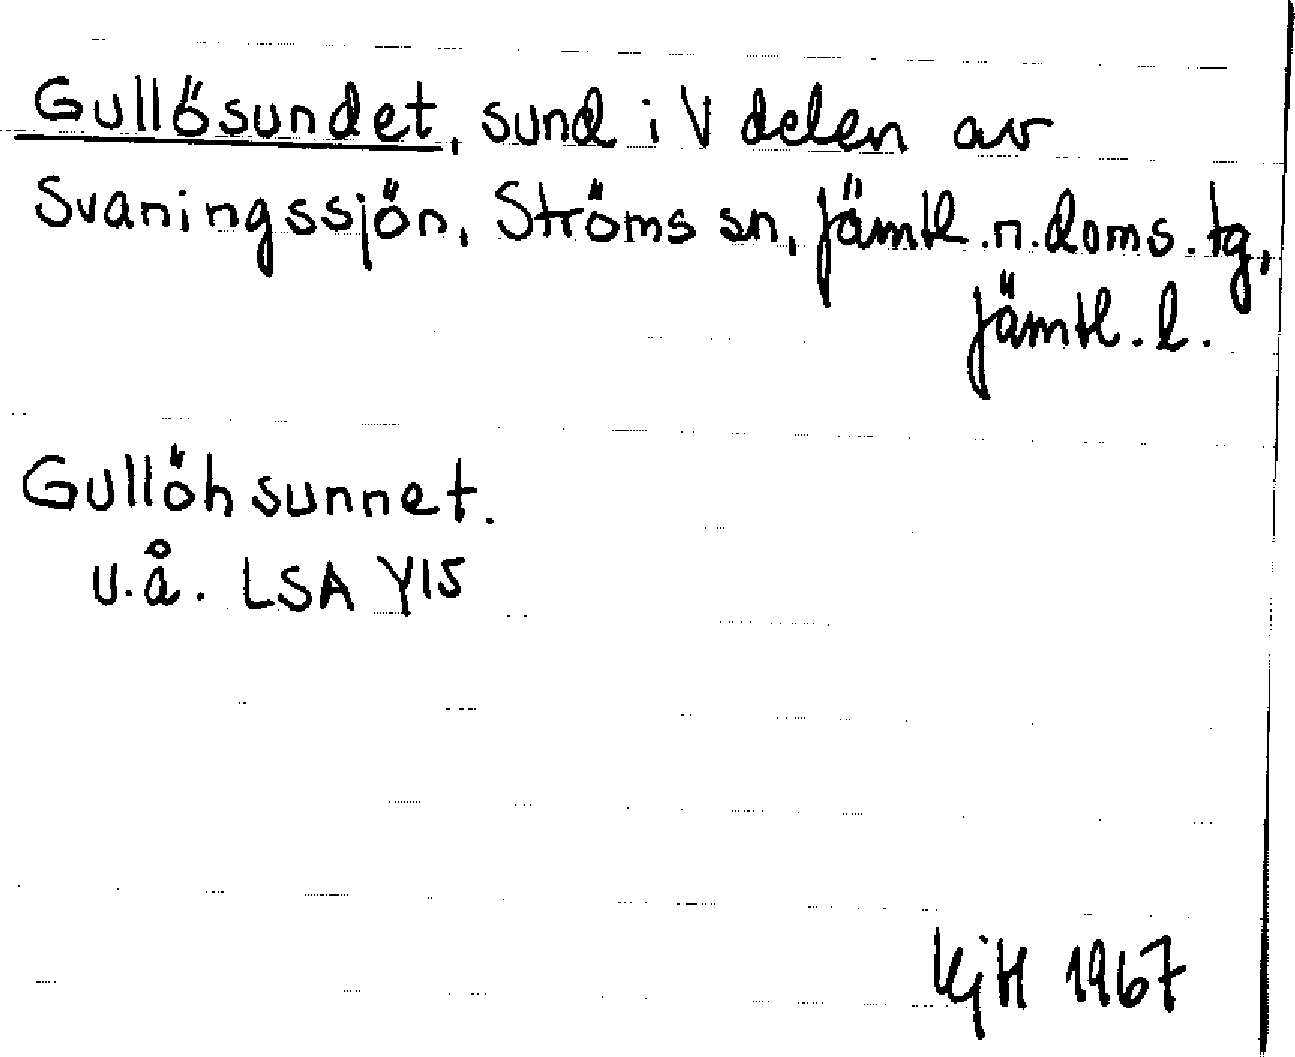 Gullösundet, sund i V delen av
Svaningssjön, Ströms sn, Jämtl.n.doms.tg,
Jämtl.l.
Gullöhsunnet.
u.å. LSA Y15
KjH 1967